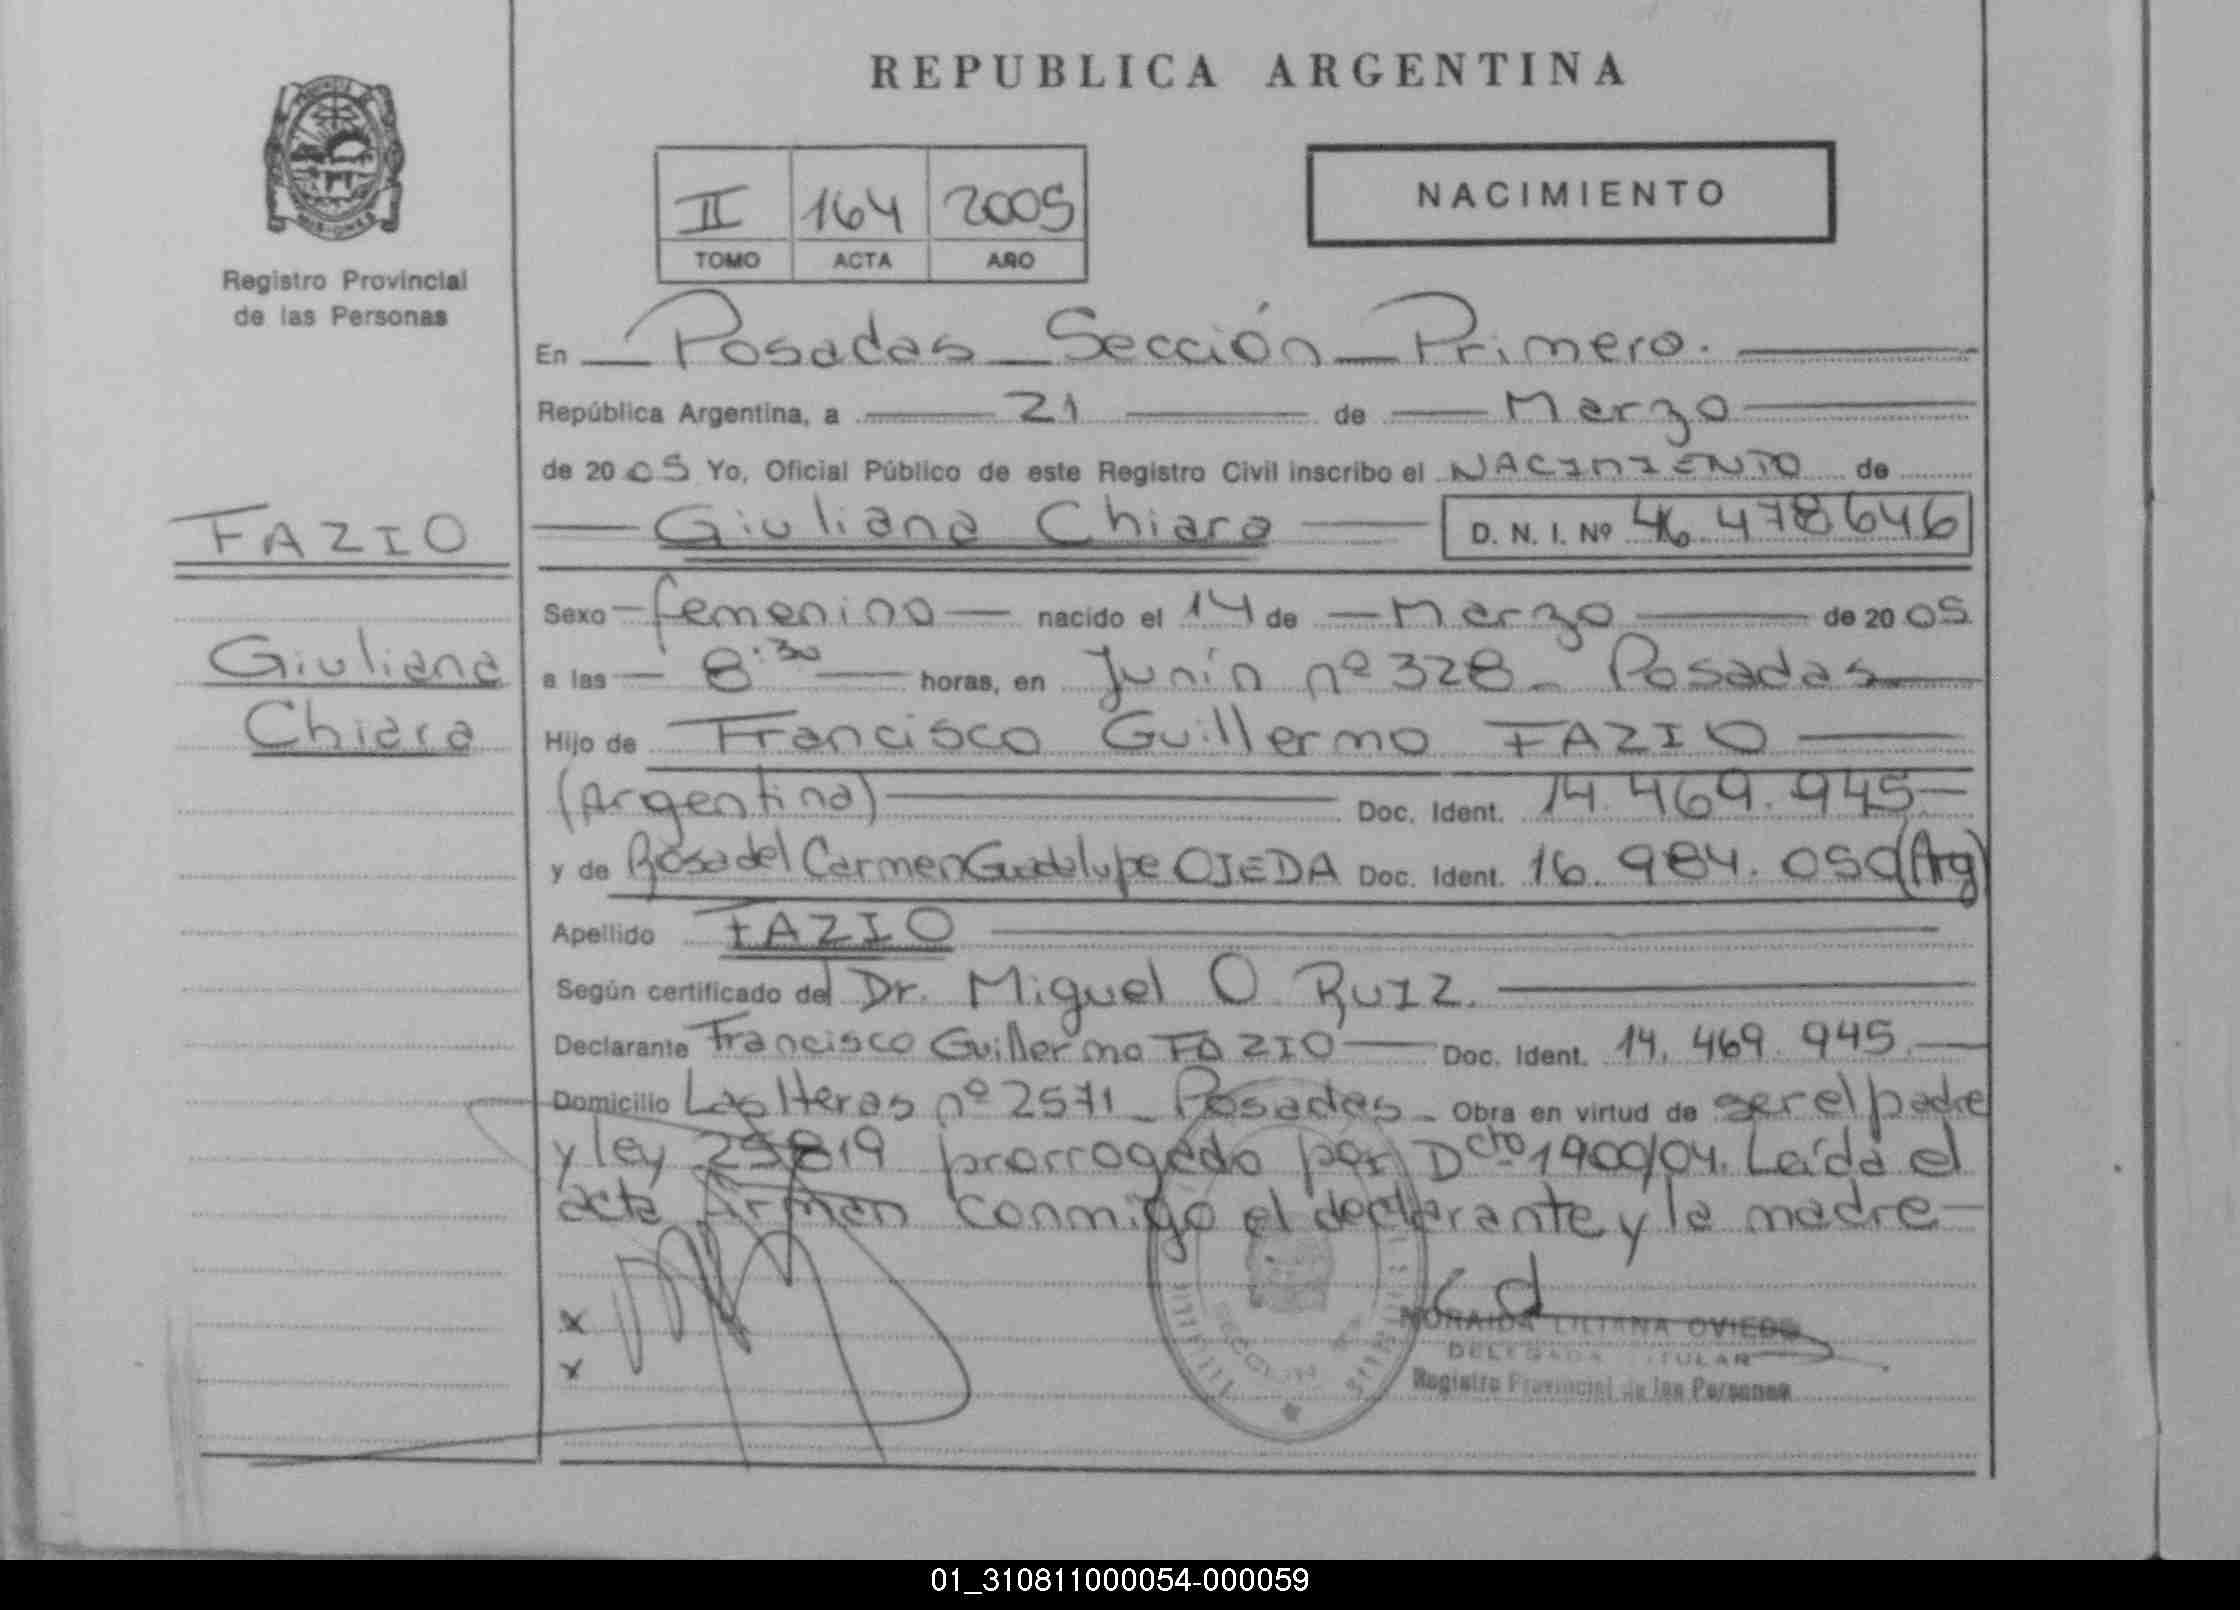 REPUBLICA ARGENTINA
NACIMIENTO
II 164 2005
TOMO ACTA AÑO
Registro Provincial
de las Personas
En Posadas Sección Primera.
República Argentina, a 21 de Marzo
de 2005 Yo, Oficial Público de este Registro Civil inscribo el NACIMIENTO de
Giuliana Chiara D. N. I. Nº 46.478646
FAZIO
Giuliana
Chiara
Sexo femenino nacido el 14 de Marzo de 2005
a las 8:30 horas, en Junín nº 328 - Posadas
Hijo de Francisco Guillermo FAZIO
(Argentina) Doc. Ident. 14.469.945
y de Rosa del Carmen Guadalupe OJEDA Doc. Ident. 16.984.050 (Arg)
Apellido FAZIO
Según certificado del Dr. Miguel O RUIZ.
Declarante Francisco Guillermo FAZIO Doc. Ident. 14.469.945
Domicilio Las Heras nº 2571 - Posadas - Obra en virtud de ser el padre
y ley 25819 prorrogada por Dcto 1900/04. Leída el
acta firman conmigo el declarante y la madre
x
x
NORAIDA LILIANA OVIEDO
DELEGADA TITULAR
Registro Provincial de las Personas
01_310811000054-000059